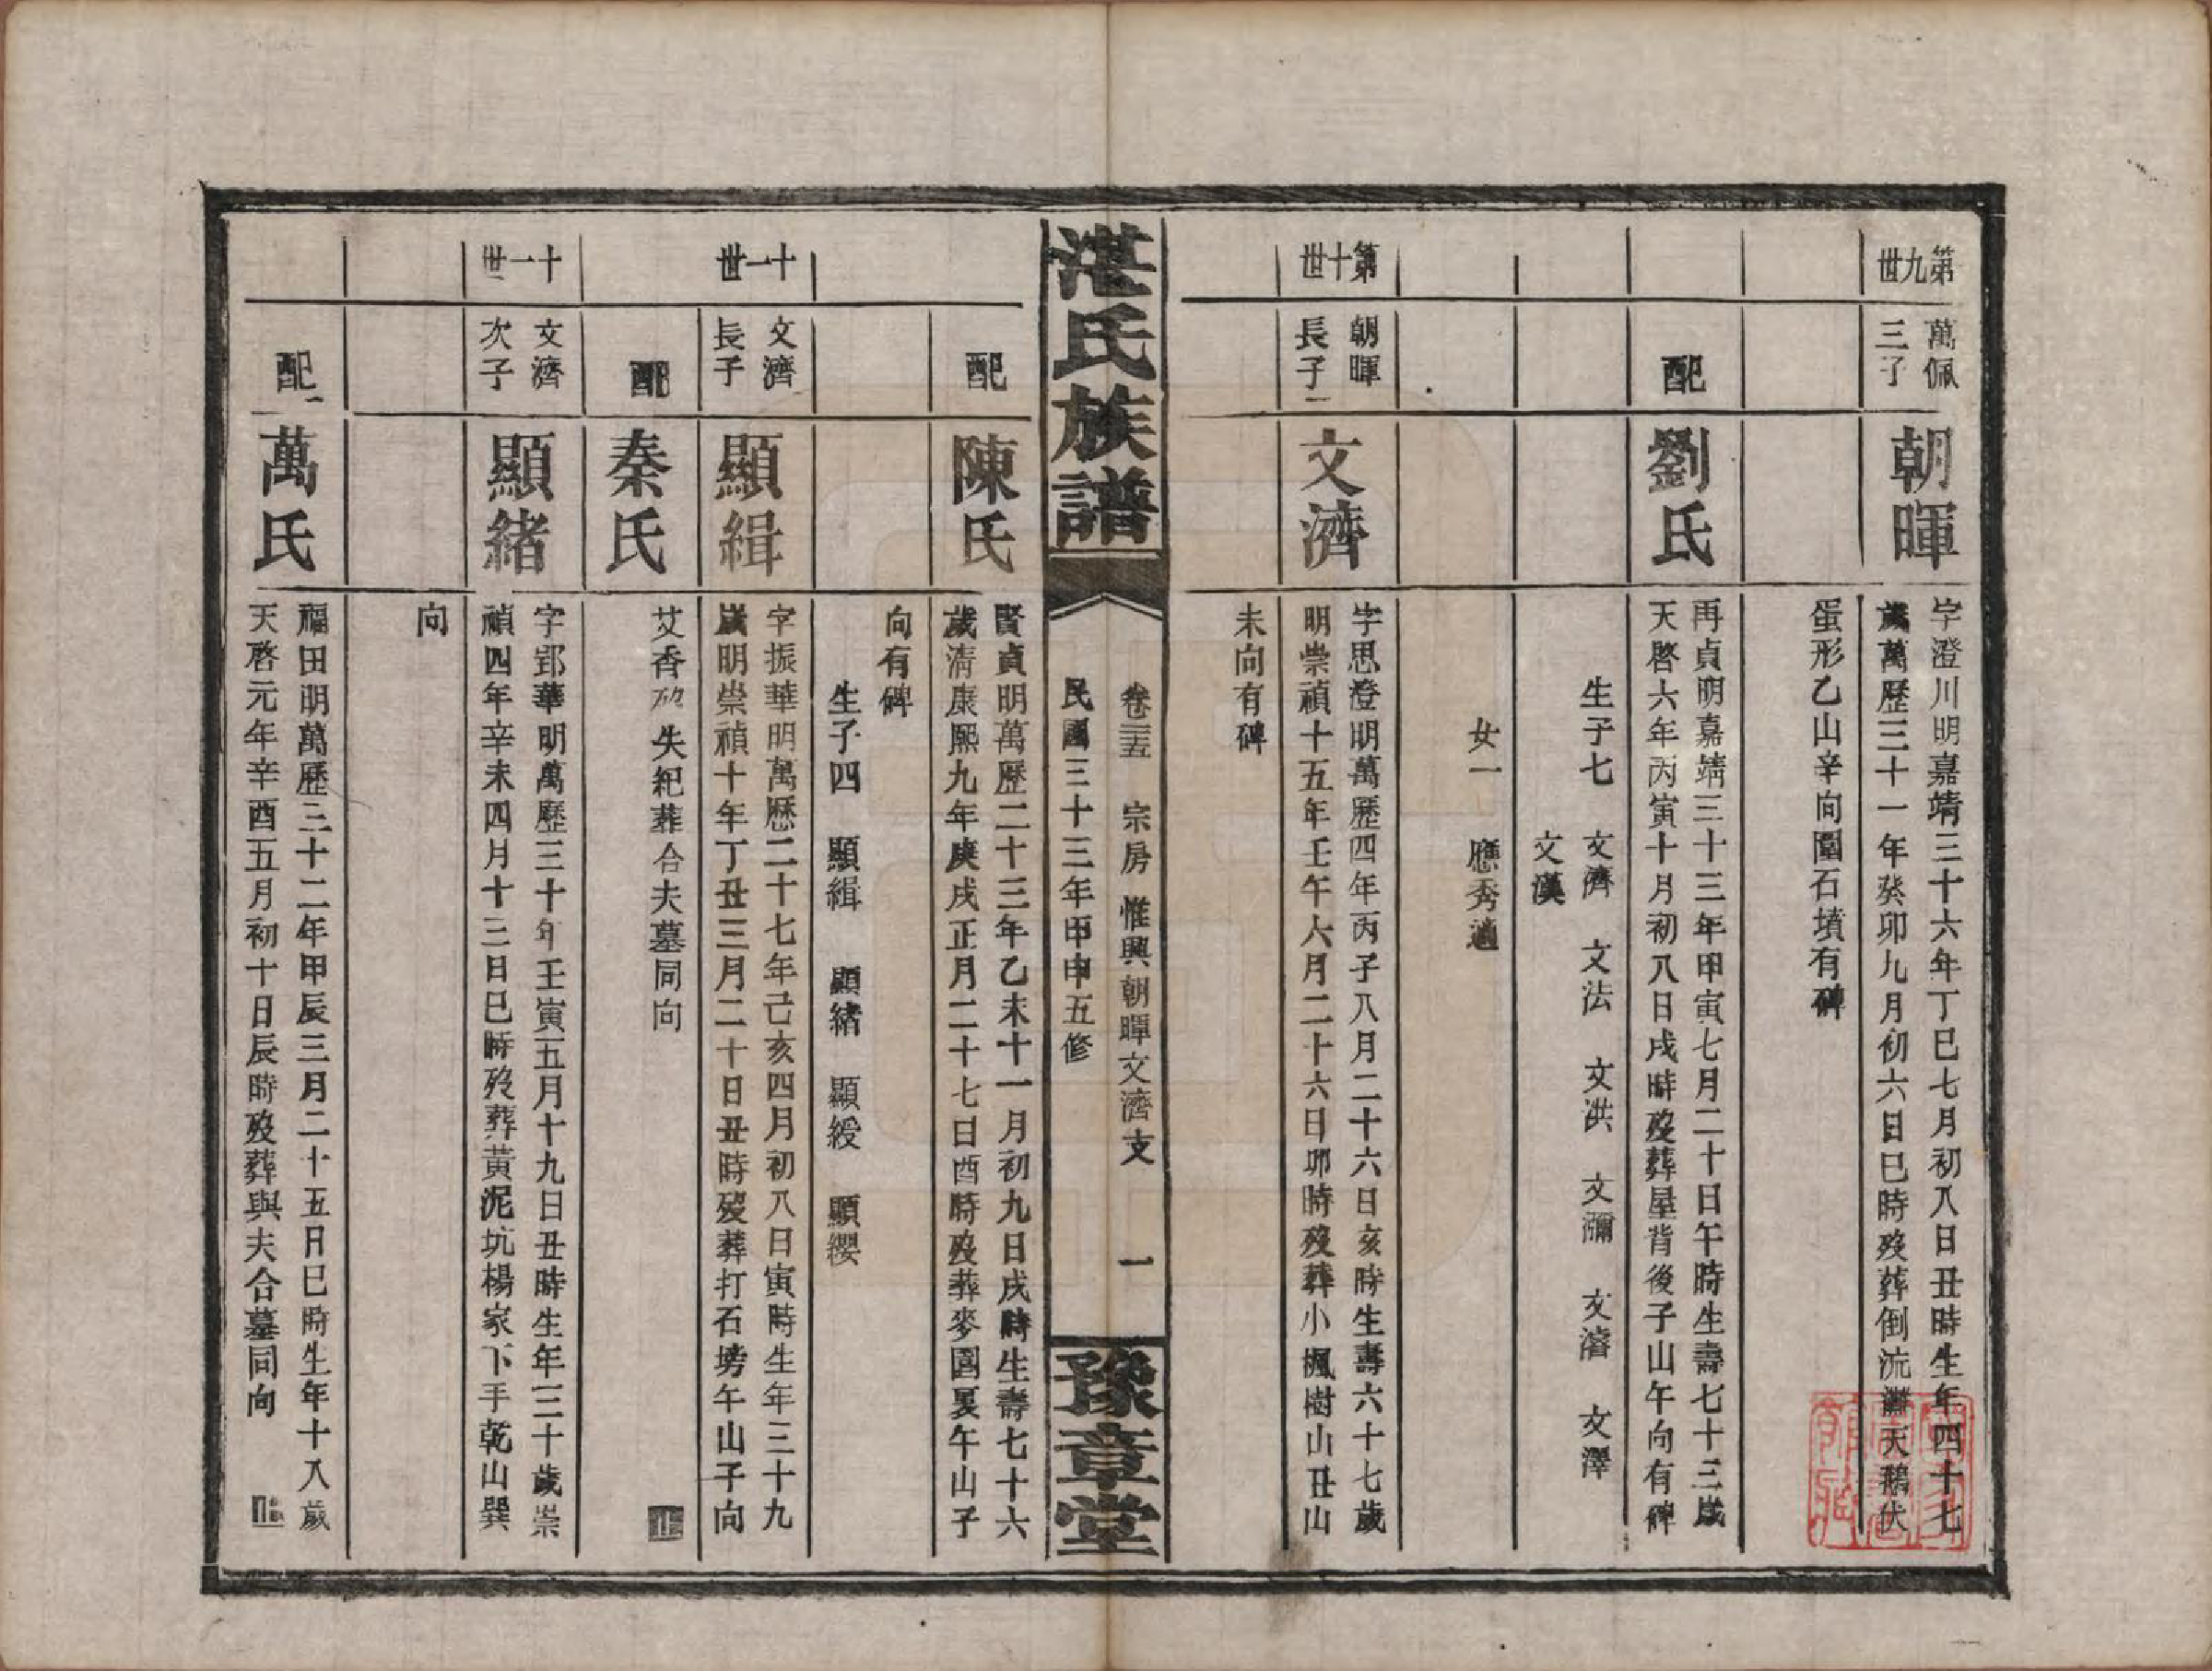 第九世
萬佩
三子
朝暉
字澄川明嘉靖三十六年丁巳七月初八日丑時生年四十七
歲萬歷三十一年癸卯九月初六日巳時歿葬倒流灘天鵝伏
蛋形乙山辛向圍石墳有碑
配
劉氏
再貞明嘉靖三十三年甲寅七月二十日午時生壽七十三歲
天啓六年丙寅十月初八日戌時歿葬屋背後子山午向有碑
生子七 文濟 文法 文洪 文瀰 文濬 文澤
文漢
女一 應秀適
第十世
朝暉
長子
文濟
字思澄明萬歷四年丙子八月二十六日亥時生壽六十七歲
明崇禎十五年壬午六月二十六日卯時歿葬小楓樹山丑山
未向有碑
湛氏族譜
卷三五 宗房 惟興朝暉文濟支 一
民國三十三年甲申五修
豫章堂
配
陳氏
賢貞明萬歷二十三年乙未十一月初九日戌時生壽七十六
歲清康熙九年庚戌正月二十七日酉時歿葬麥園裏午山子
向有碑
生子四 顯緝 顯緒 顯綬 顯纓
十一世
文濟
長子
顯緝
字振華明萬歷二十七年己亥四月初八日寅時生年三十九
歲明崇禎十年丁丑三月二十日丑時歿葬打石塝午山子向
配
秦氏
艾香歿失紀葬合夫墓同向
止
十一世
文濟
次子
顯緒
字郢華明萬歷三十年壬寅五月十九日丑時生年三十歲崇
禎四年辛未四月十三日巳時歿葬黃泥坑楊家下手乾山巽
向
配
萬氏
福田明萬歷三十二年甲辰三月二十五日巳時生年十八歲
天啓元年辛酉五月初十日辰時歿葬與夫合墓同向
止